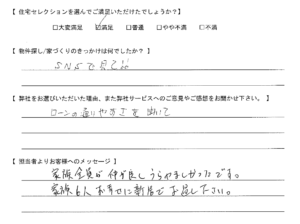 【 住宅セレクションを選んでご満足いただけたでしょうか？】
□大変満足 ☑満足 □普通 □やや不満 □不満
【 物件探し/家づくりのきっかけは何でしたか？ 】
SNSで見て!!
【 弊社をお選びいただいた理由、また弊社サービスへのご意見やご感想をお聞かせ下さい。 】
ローンの通りやすさを聞いて
【 担当者よりお客様へのメッセージ 】
家族全員が仲が良くうらやましかったです。
家族6人お幸せに新居でお過し下さい。